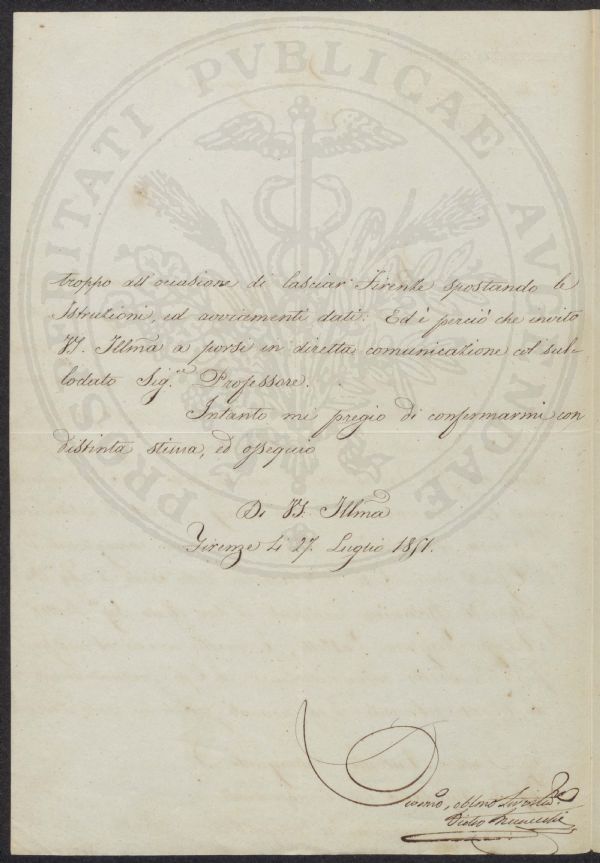 PROSPERITATI PVBLICAE AVGENDAE
troppo all'occasione di lasciar Firenze spostando le
Istruzioni, ed avviamenti dati. Ed è perciò che invito
VS. Illma a porsi in diretta comunicazione col sul-
lodato Sig.re Professore.
Intanto mi pregio di confermarmi con
distinta stima, ed ossequio
Di VS. Illma
Firenze Li 27. Luglio 1851.
Devmo, obbmo Servitore
Pietro